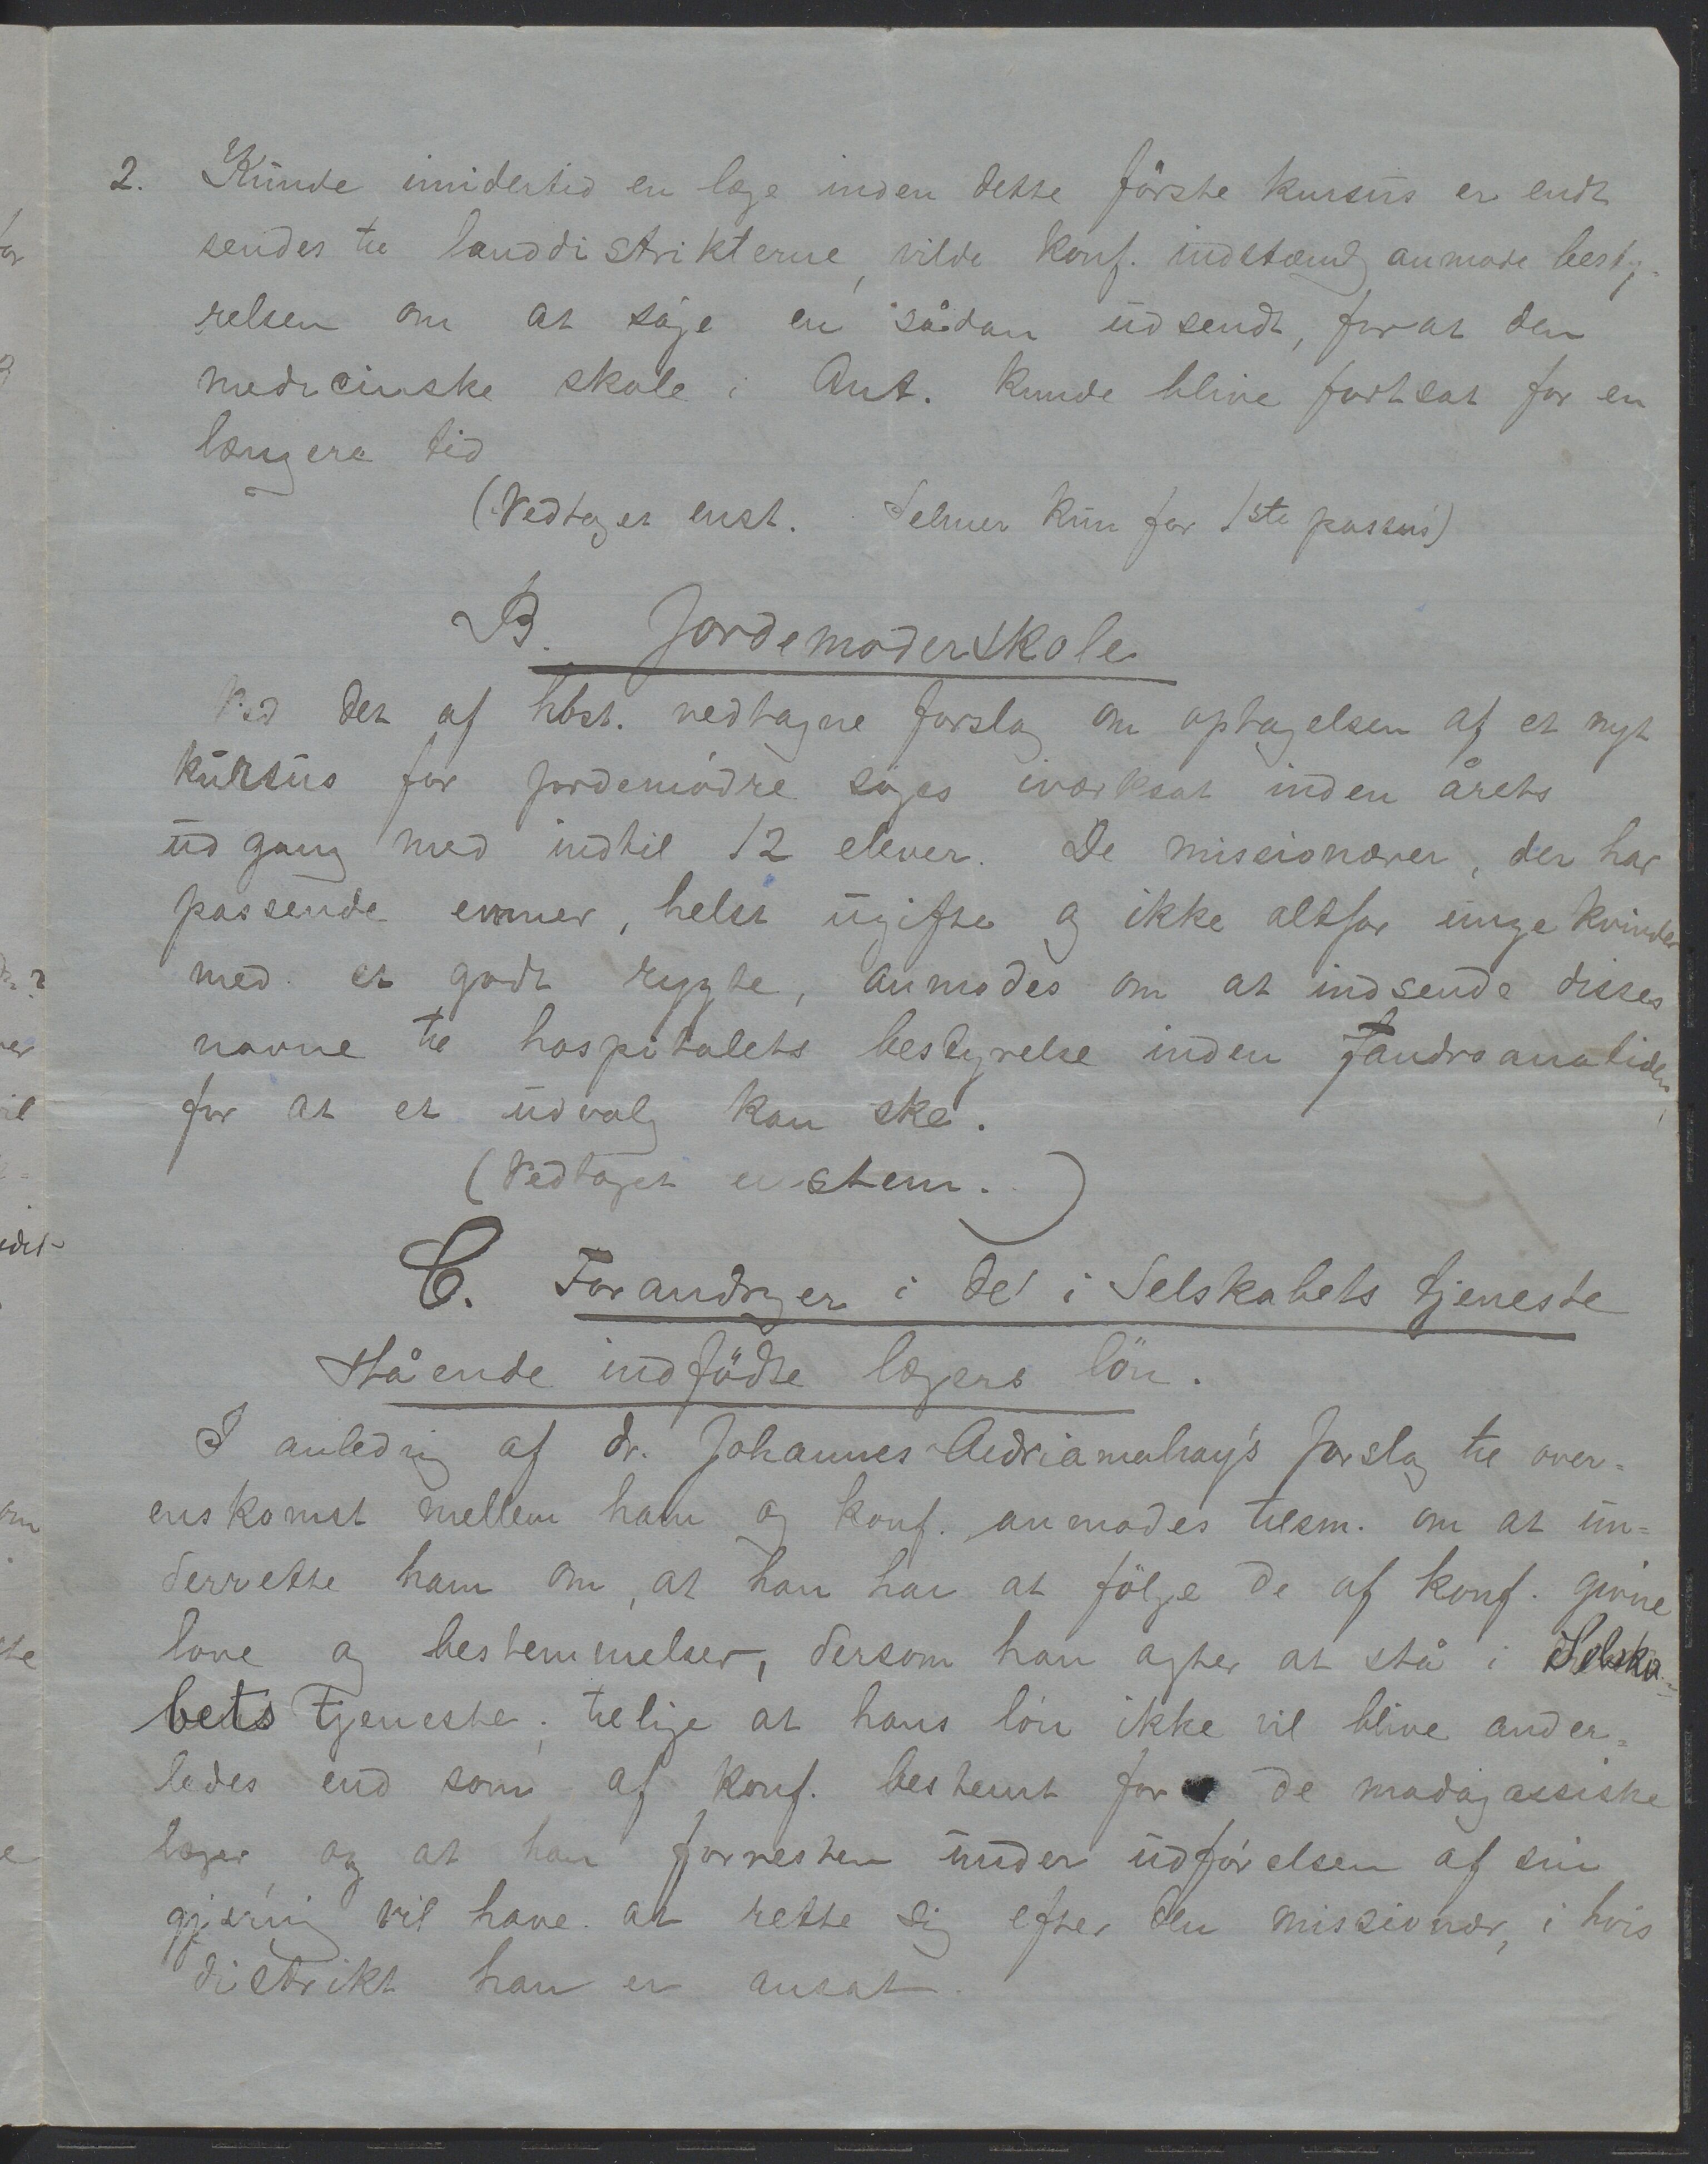 2. Kunde imidertid en læge inden dette förste kursus er endt
sendes til landdistrikterne, vilde konf. indstændg anmode besty-
relsen om at söge en sådan udsendt, forat den
medicinske skole i Ant. kunde blive fortsat for en
længere tid
(Vedtaget enst. Selmer kun for 1ste passus)
B. Jordemoderskole
Ved det af hbst. vedtagne forslag om optagelsen af et nyt
kursus for jordemödre söges iværksat inden årets
udgang med indtil 12 elever. De missionærer, der har
passende emner, helst ugifte og ikke altfor unge kvinder
med et godt rygte, anmodes om at indsende disses
navne til hospitalets bestyrelse inden fandroanatiden,
for at et udvalg kan ske.
(Vedtaget enstem.)
C. Forandrger i de i Selskabets tjeneste
stående indfödte lægers lön.
I anledng af dr. Johannes Aedriamahay's forslag til over-
enskomst mellem ham og konf. anmodes tilsm. om at un-
derrette ham om, at han har at fölge de af konf. givne
love og bestemmelser, dersom han agter at stå i Selska-
bets tjeneste; tillige at hans lön ikke vil blive ander-
ledes end som af konf. bestemt for de madagassiske
læger, og at han forresten under udförelsen af sin
gjerning vil have at rette sig efter den missionær, i hvis
distrikt han er ansat.